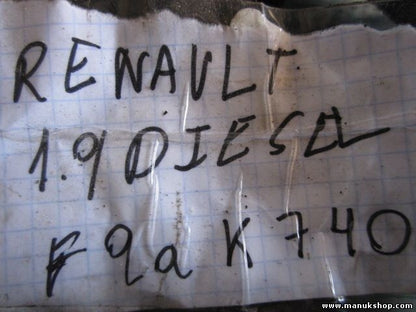 RENAULT
1.9 DIESEL
F9a K740
www.manukshop.com